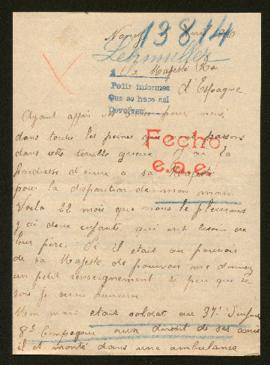 13814
Lehmuller
A Sa Majesté Roi
d'Espagne
Pedir informes
Que se hace así
Devolver
Ayant appris
dans toutes les peines que nous passons
dans cette terrible guerre j'ai la
hardiesse d'écrire a sa Majesté
pour la disparition de mon mari
Voila 22 mois que nous le pleurons
j'ai deux enfants qui ont besoin de
leur père. Si il était au pouvoir
de sa Majesté de pouvoir me donner
un petit renseignement si peu que ce
soit je serai heureuse
Fecho
e.a.c.
Mon mari etait soldat au 37e d'infanterie
8e Compagnie aux dire de ses amis
il est monté dans une ambulance